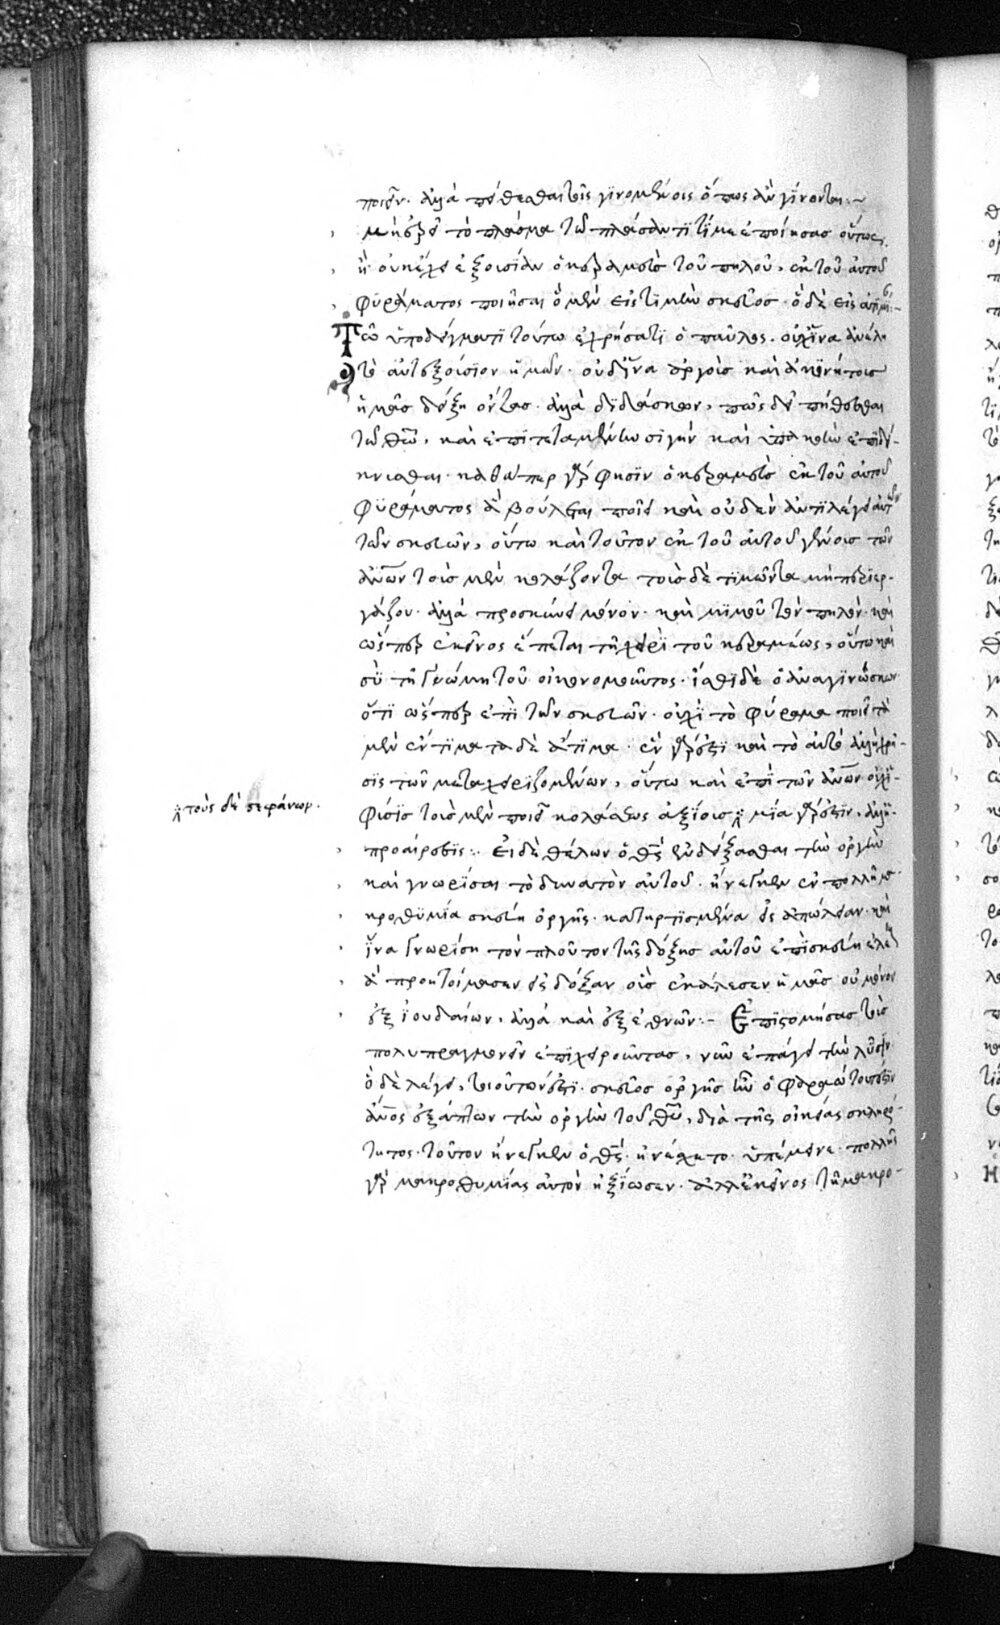 ποιεῖν. ἀλλὰ πείθεσθαι τοῖς γϊνομένοις ὅπως ἂν γίνονται:~
μὴ ἐρεῖ τὸ πλάσμα τῶ πλάσαντϊ τί με ἐποίησας οὕτως,
ἢ οὐκ ἔχει ἐξουσίαν ὁ κεραμεὺς τοῦ πηλοῦ, ἐκ τοῦ αὐτοῦ
φϋράματος ποιῆσαι ὃ μὲν εἰς τϊμὴν σκεῦος. ὃ δὲ εἰς ἀτϊμί-
Τῶ ὑποδείγματϊ τούτω ἐχρήσατο ὁ παῦλος. οὐχ ἵνα ἀνέλη
τὸ αὐτεξούσϊον ἡμῶν. οὐδ' ἵνα ἀργοὺς καὶ ἀκϊνήτους
ἡμᾶς δείξη ὄντας. ἀλλὰ δϊδάσκων, πῶς δεῖ πείθεσθαι
τῶ θῶ, καὶ ἐπϊτεταμένην σϊγὴν καὶ ὑπακοὴν ἐπϊδεί-
κνυσθαι. καθάπερ γὰρ φησϊν ὁ κεραμεὺς ἐκ τοῦ αὐτοῦ
φϋράματος ἃ βούλεται ποιεῖ καὶ οὐδὲν ἀντϊλέγει αὐτῶ
τῶν σκευῶν, οὕτω καὶ τοῦτον ἐκ τοῦ αὐτοῦ γένους τῶν
ἀνων τοὺς μὲν κολάζοντα τοὺς δὲ τϊμῶντα μὴ περϊερ-
γάζου. ἀλλὰ προσκύνει μόνον. καὶ μϊμοῦ τὸν πηλόν. καὶ
ὥσπερ ἐκεῖνος ἕπεται τῆ χειρὶ τοῦ κεραμέως, οὕτω καὶ
σὺ τῆ γνώμη τοῦ οἰκονομοῦντος. ἴσθϊ δὲ ὁ ἀναγϊνώσκων
ὅτϊ ὥσπερ ἐπὶ τῶν σκευῶν. οὐχϊ τὸ φύραμα ποιεῖ τὰ
μὲν ἔντϊμα τὰ δὲ ἄτϊμα. ἓν γάρ ἐστϊ καὶ τὸ αὐτὸ ἀλλ' ἡ χρῆ-
σϊς τῶν μεταχειρϊζομένων, οὕτω καὶ ἐπὶ τῶν ἀνων οὐχ ἡ
φύσϊς τοὺς μὲν ποιεῖ κολάσεως ἀξίους μία γάρ ἐστϊν. ἀλλ' ἡ
τοὺς δὲ στεφάνων.
προαίρεσϊς:. Εἰ δὲ θέλων ὁ θς ἐνδείξασθαι τὴν ὀργὴν
καὶ γνωρίσαι τὸ δυνατὸν αὐτοῦ. ἤνεγκεν ἐν πολλῆ μα-
κροθϋμία σκεύη ὀργῆς. κατηρτϊσμένα εἰς ἀπώλειαν. καὶ
ἵνα γνωρίση τὸν πλοῦτον τῆς δόξης αὐτοῦ ἐπὶ σκεύη ἐλέους
ἃ προητοίμασεν εἰς δόξαν οὓς ἐκάλεσεν ἡμᾶς οὐ μόνον
ἐξ ἰουδαίων, ἀλλὰ καὶ ἐξ ἐθνῶν:- Ἐπϊστομήσας τοὺς
πολυπραγμονεῖν ἐπϊχειροῦντας, νῦν ἐπάγει τὴν λύσϊν.
ὃ δὲ λέγει, τοιοῦτόν ἐστϊ. σκεῦος ὀργῆς ἦν ὁ φαραὼ τουτέστϊν
ἄνος ἐξάπτων τὴν ὀργὴν τοῦ θῦ, διὰ τῆς οἰκείας σκληρό-
τητος. τοῦτον ἤνεγκεν ὁ θς. ἠνέσχετο. ὑπέμεινε. πολλῆς
γὰρ μακροθυμίας αὐτὸν ἠξίωσεν. ἀλλ' ἐκεῖνος τῆ μακρο-